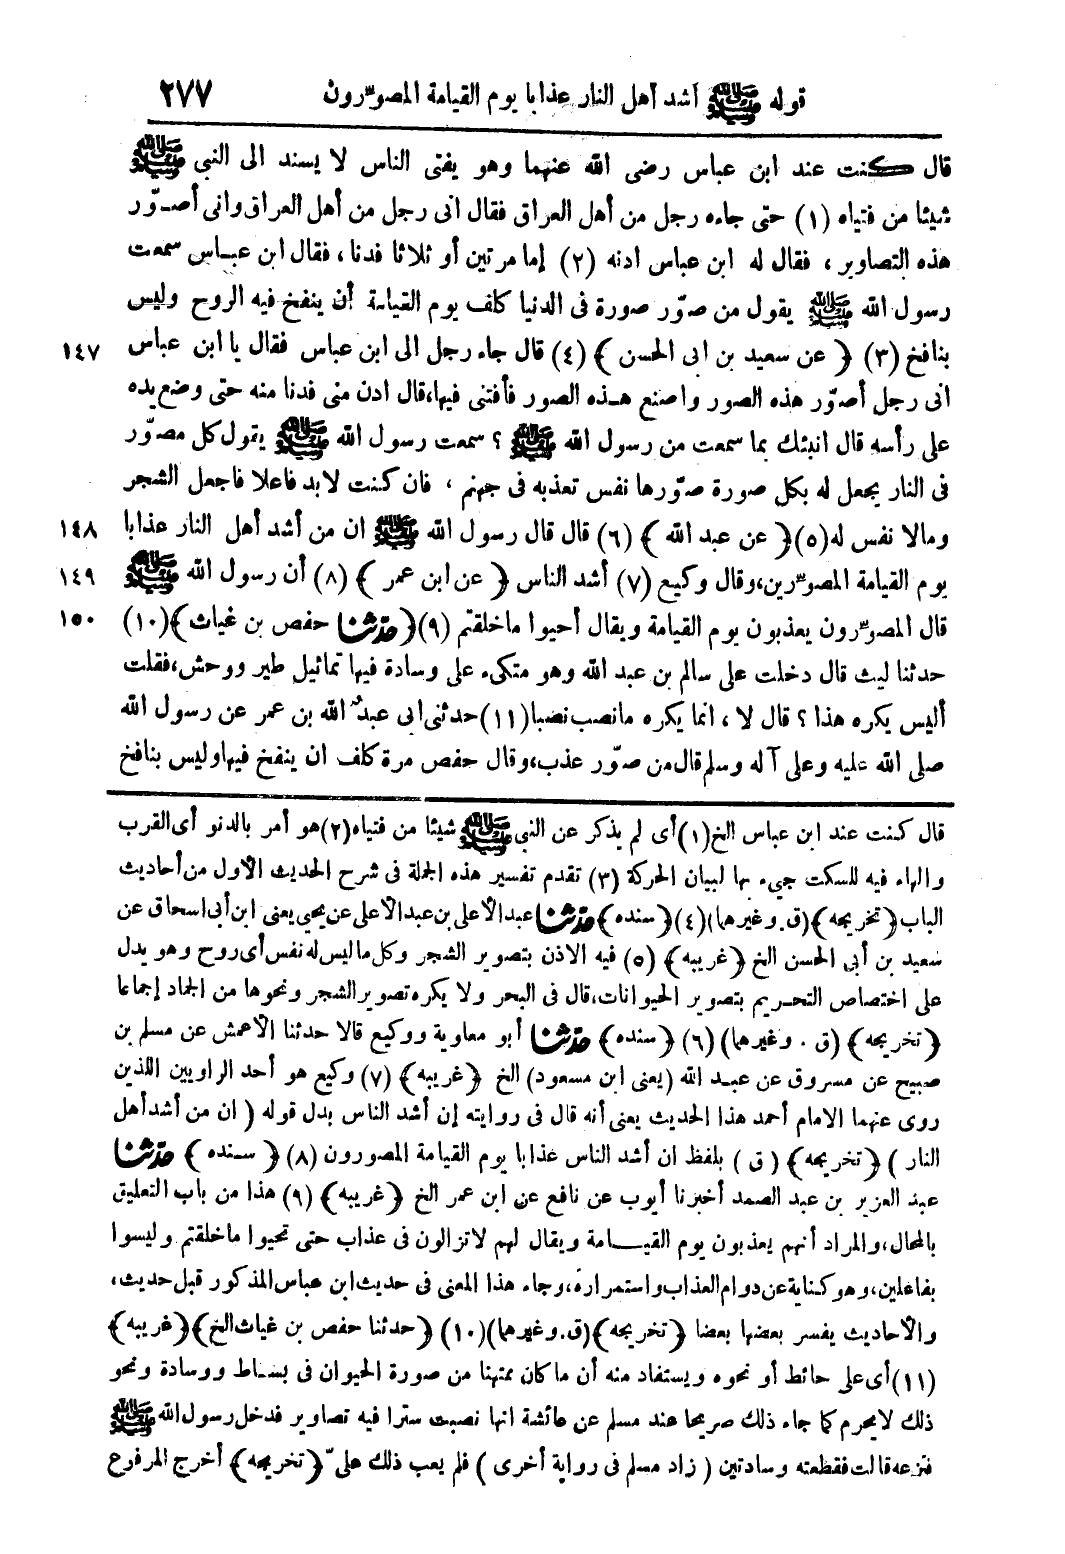 قوله ﷺ أشد أهل النار عذابا يوم القيامة المصوّرون ٢٧٧
قال كنت عند ابن عباس رضى الله عنهما وهو يفتى الناس لا يسند الى النبى ﷺ
شيئا من فتياه (١) حتى جاءه رجل من أهل العراق فقال انى رجل من أهل العراق وانى أصـوّر
هذه التصاوير ، فقال له ابن عباس ادنه (٢) إما مرتين أو ثلاثا فدنا ، فقال ابن عبـاس سمعت
رسول الله ﷺ يقول من صوّر صورة فى الدنيا كلف يوم القيامة أن ينفخ فيه الروح وليس
بنافخ (٣) ﴿ عن سعيد بن ابى الحسن ﴾ (٤) قال جاء رجل الى ابن عباس فقال يا ابن عباس ١٤٧
انى رجل أصوّر هذه الصور واصنع هـذه الصور فأفتنى فيها، قال ادن منى فدنا منه حتى وضع يده
على رأسه قال انبئك بما سمعت من رسول الله ﷺ ؟ سمعت رسول الله ﷺ يقول كل مصوّر
فى النار يجعل له بكل صورة صوّرها نفس تعذبه فى جهنم ، فان كنت لابد فاعلا فاجعل الشجر
ومالا نفس له (٥) ﴿ عن عبد الله ﴾ (٦) قال قال رسول الله ﷺ ان من أشد أهل النار عذابا ١٤٨
يوم القيامة المصوّرين، وقال وكيع (٧) أشد الناس ﴿ عن ابن عمر ﴾ (٨) أن رسول الله ﷺ ١٤٩
قال المصوّرون يعذبون يوم القيامة ويقال أحيوا ما خلقتم (٩) ﴿ حدّثنا حفص بن غياث ﴾ (١٠) ١٥٠
حدثنا ليث قال دخلت على سالم بن عبد الله وهو متكىء على وسادة فيها تماثيل طير ووحش، فقلت
أليس يكره هذا ؟ قال لا ، انما يكره ما نصب نصبا (١١) حدثنى ابى عبد الله بن عمر عن رسول الله
صلى الله عليه وعلى آله وسلم قال من صوّر عذب، وقال حفص مرة كلف ان ينفخ فيها وليس بنافخ
قال كنت عند ابن عباس الخ (١) أى لم يذكر عن النبى ﷺ شيئا من فتياه (٢) هو أمر بالدنو أى القرب
والهاء فيه للسكت جىء بها لبيان الحركة (٣) تقدم تفسير هذه الجملة فى شرح الحديث الاول من أحاديث
الباب ﴿تخريجه﴾ (ق. وغيرهما) (٤) ﴿سنده﴾ حدّثنا عبد الأعلى بن عبد الأعلى عن يحيى يعنى ابن أبى اسحاق عن
سعيد بن أبى الحسن الخ ﴿غريبه﴾ (٥) فيه الاذن بتصوير الشجر وكل ما ليس له نفس أى روح وهو يدل
على اختصاص التحـريم بتصوير الحيوانات، قال فى البحر ولا يكره تصوير الشجر ونحوها من الجماد إجماعا
﴿تخريجه﴾ (ق . وغيرهما) (٦) ﴿سنده﴾ حدّثنا أبو معاوية ووكيع قالا حدثنا الأعمش عن مسلم بن
صبيح عن مسروق عن عبـد الله (يعنى ابن مسعود) الخ ﴿غريبه﴾ (٧) وكيع هو أحد الراويين اللذين
روى عنهما الامام أحمد هذا الحديث يعنى أنه قال فى روايته إن أشد الناس بدل قوله ( ان من أشد أهل
النار ) ﴿تخريجه﴾ ( ق ) بلفظ ان أشد الناس عذابا يوم القيامة المصورون (٨) ﴿ سـنده ﴾ حدّثنا
عبد العزيز بن عبد الصمد أخبرنا أيوب عن نافع عن ابن عمر الخ ﴿غريبه﴾ (٩) هذا من باب التعليق
بالمحال، والمراد أنهم يعذبون يوم القيـــامة ويقال لهم لا تزالون فى عذاب حتى تحيوا ما خلقتم وليسوا
بفاعلين، وهو كناية عن دوام العذاب واستمراره، وجاء هذا المعنى فى حديث ابن عباس المذكور قبل حديث،
والأحاديث يفسر بعضها بعضا ﴿تخريجه﴾ (ق. وغيرهما) (١٠) ﴿حدثنا حفص بن غياث الخ﴾ ﴿غريبه﴾
(١١) أى على حائط أو نحوه ويستفاد منه أن ما كان ممتهنا من صورة الحيوان فى بسـاط ووسادة ونحو
ذلك لا يحرم كما جاء ذلك صريحا عند مسلم عن عائشة انها نصبت سترا فيه تصاوير فدخل رسول الله ﷺ
فنزعه قالت فقطعته وسادتين ( زاد مسلم فى رواية أخرى ) فلم يعب ذلك علىّ ﴿تخريجه﴾ أخرج المرفوع